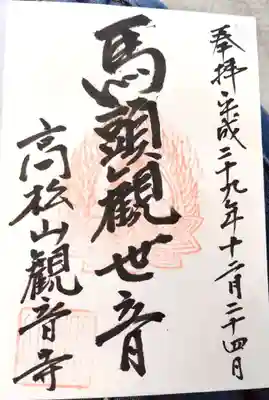 奉拝平成二十九年十二月二十四日
馬頭観世音
高松山観音寺